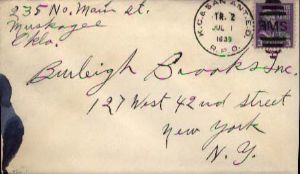 235 No. Main st.
Muskogee
Okla.
K.C. & SAN ANT. E.D.
TR. 2
JUL 1
1939
R.P.O.
RMS
Burleigh Brooks Inc.
127 West 42nd street
New York
N. Y.